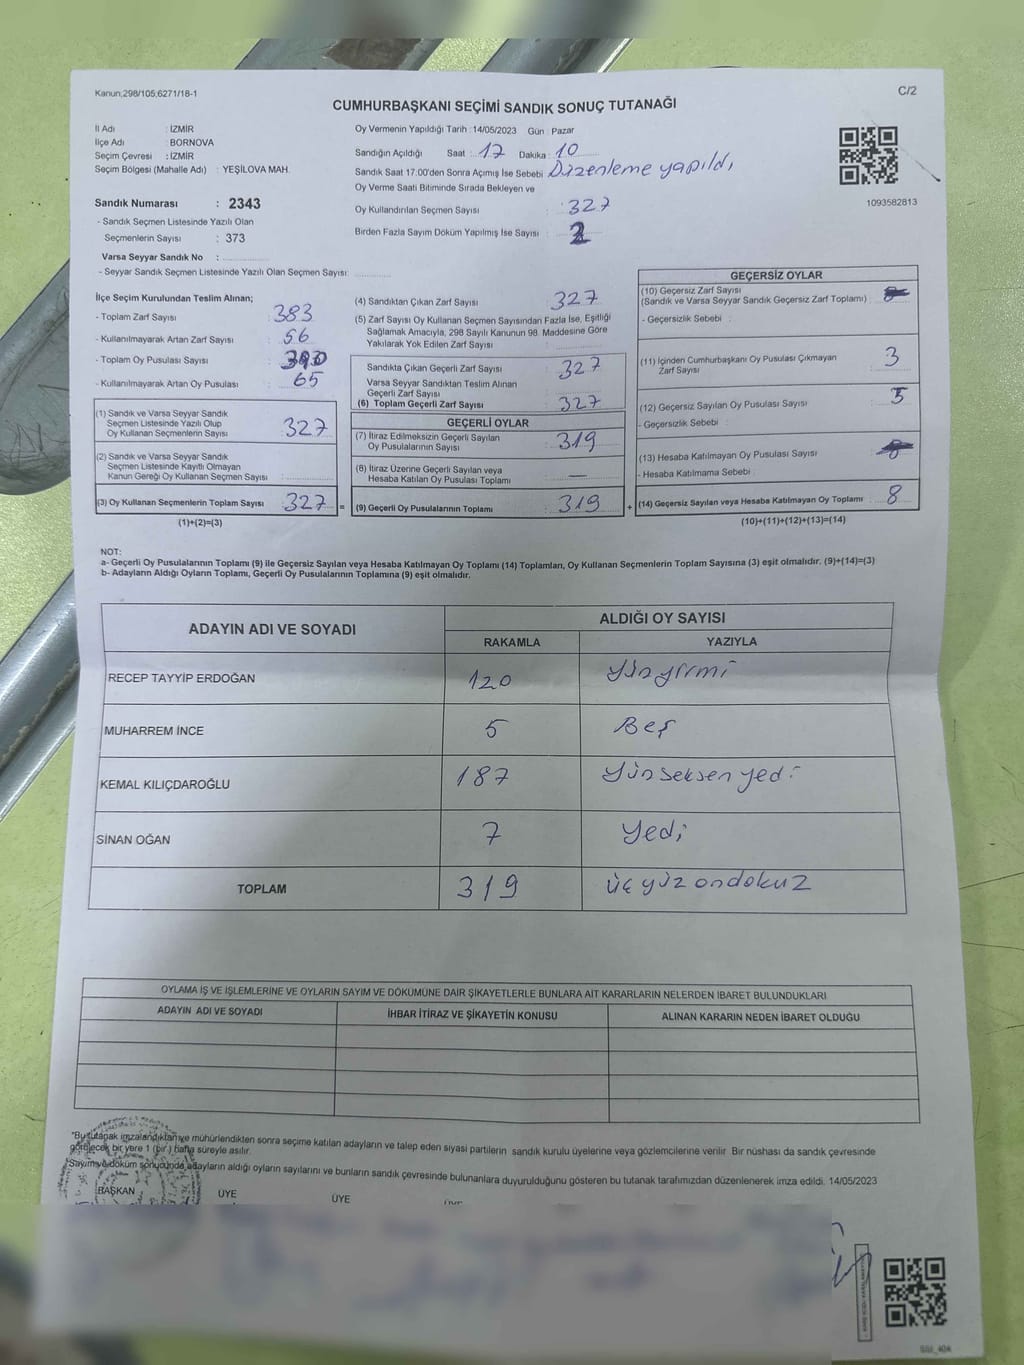 Kanun;298/105;6271/18-1
C/2
CUMHURBAŞKANI SEÇİMİ SANDIK SONUÇ TUTANAĞI
İl Adı : İZMİR
İlçe Adı : BORNOVA
Seçim Çevresi : İZMİR
Seçim Bölgesi (Mahalle Adı) : YEŞİLOVA MAH.
Sandık Numarası : 2343
- Sandık Seçmen Listesinde Yazılı Olan
Seçmenlerin Sayısı : 373
Varsa Seyyar Sandık No :
- Seyyar Sandık Seçmen Listesinde Yazılı Olan Seçmen Sayısı:
Oy Vermenin Yapıldığı Tarih :14/05/2023 Gün : Pazar
Sandığın Açıldığı Saat : 17 Dakika : 10
Sandık Saat 17:00'den Sonra Açımış İse Sebebi Düzenleme yapıldı
Oy Verme Saati Bitiminde Sırada Bekleyen ve
Oy Kullandırılan Seçmen Sayısı : 327
Birden Fazla Sayım Döküm Yapılmış İse Sayısı : 2
1093582813
İlçe Seçim Kurulundan Teslim Alınan;
- Toplam Zarf Sayısı : 383
- Kullanılmayarak Artan Zarf Sayısı : 56
- Toplam Oy Pusulası Sayısı :
- Kullanılmayarak Artan Oy Pusulası : 65
(1) Sandık ve Varsa Seyyar Sandık
Seçmen Listesinde Yazılı Olup
Oy Kullanan Seçmenlerin Sayısı : 327
(2) Sandık ve Varsa Seyyar Sandık
Seçmen Listesinde Kayıtlı Olmayan
Kanun Gereği Oy Kullanan Seçmen Sayısı :
(3) Oy Kullanan Seçmenlerin Toplam Sayısı : 327 =
(1)+(2)=(3)
(4) Sandıktan Çıkan Zarf Sayısı : 327
(5) Zarf Sayısı Oy Kullanan Seçmen Sayısından Fazla İse, Eşitliği
Sağlamak Amacıyla, 298 Sayılı Kanunun 98. Maddesine Göre
Yakılarak Yok Edilen Zarf Sayısı :
Sandıkta Çıkan Geçerli Zarf Sayısı : 327
Varsa Seyyar Sandıktan Teslim Alınan
Geçerli Zarf Sayısı :
(6) Toplam Geçerli Zarf Sayısı : 327
GEÇERLİ OYLAR
(7) İtiraz Edilmeksizin Geçerli Sayılan
Oy Pusulalarının Sayısı : 319
(8) İtiraz Üzerine Geçerli Sayılan veya
Hesaba Katılan Oy Pusulası Toplamı : —
(9) Geçerli Oy Pusulalarının Toplamı : 319 +
GEÇERSİZ OYLAR
(10) Geçersiz Zarf Sayısı
(Sandık ve Varsa Seyyar Sandık Geçersiz Zarf Toplamı) :
- Geçersizlik Sebebi :
(11) İçinden Cumhurbaşkanı Oy Pusulası Çıkmayan
Zarf Sayısı : 3
(12) Geçersiz Sayılan Oy Pusulası Sayısı : 5
- Geçersizlik Sebebi :
(13) Hesaba Katılmayan Oy Pusulası Sayısı :
- Hesaba Katılmama Sebebi :
(14) Geçersiz Sayılan veya Hesaba Katılmayan Oy Toplamı : 8
(10)+(11)+(12)+(13)=(14)
NOT:
a- Geçerli Oy Pusulalarının Toplamı (9) ile Geçersiz Sayılan veya Hesaba Katılmayan Oy Toplamı (14) Toplamları, Oy Kullanan Seçmenlerin Toplam Sayısına (3) eşit olmalıdır. (9)+(14)=(3)
b- Adayların Aldığı Oyların Toplamı, Geçerli Oy Pusulalarının Toplamına (9) eşit olmalıdır.
ADAYIN ADI VE SOYADI
ALDIĞI OY SAYISI
RAKAMLA YAZIYLA
RECEP TAYYİP ERDOĞAN 120 yüzyirmi
MUHARREM İNCE 5 Beş
KEMAL KILIÇDAROĞLU 187 yüzseksenyedi
SİNAN OĞAN 7 yedi
TOPLAM 319 üçyüzondokuz
OYLAMA İŞ VE İŞLEMLERİNE VE OYLARIN SAYIM VE DÖKÜMÜNE DAİR ŞİKAYETLERLE BUNLARA AİT KARARLARIN NELERDEN İBARET BULUNDUKLARI
ADAYIN ADI VE SOYADI İHBAR İTİRAZ VE ŞİKAYETİN KONUSU ALINAN KARARIN NEDEN İBARET OLDUĞU
"Bu tutanak imzalandıktan ve mühürlendikten sonra seçime katılan adayların ve talep eden siyasi partilerin sandık kurulu üyelerine veya gözlemcilerine verilir. Bir nüshası da sandık çevresinde
görülecek bir yere 1 (bir) hafta süreyle asılır.
Sayım ve döküm sonucunda adayların aldığı oyların sayılarını ve bunların sandık çevresinde bulunanlara duyurulduğunu gösteren bu tutanak tarafımızdan düzenlenerek imza edildi. 14/05/2023
BAŞKAN ÜYE ÜYE